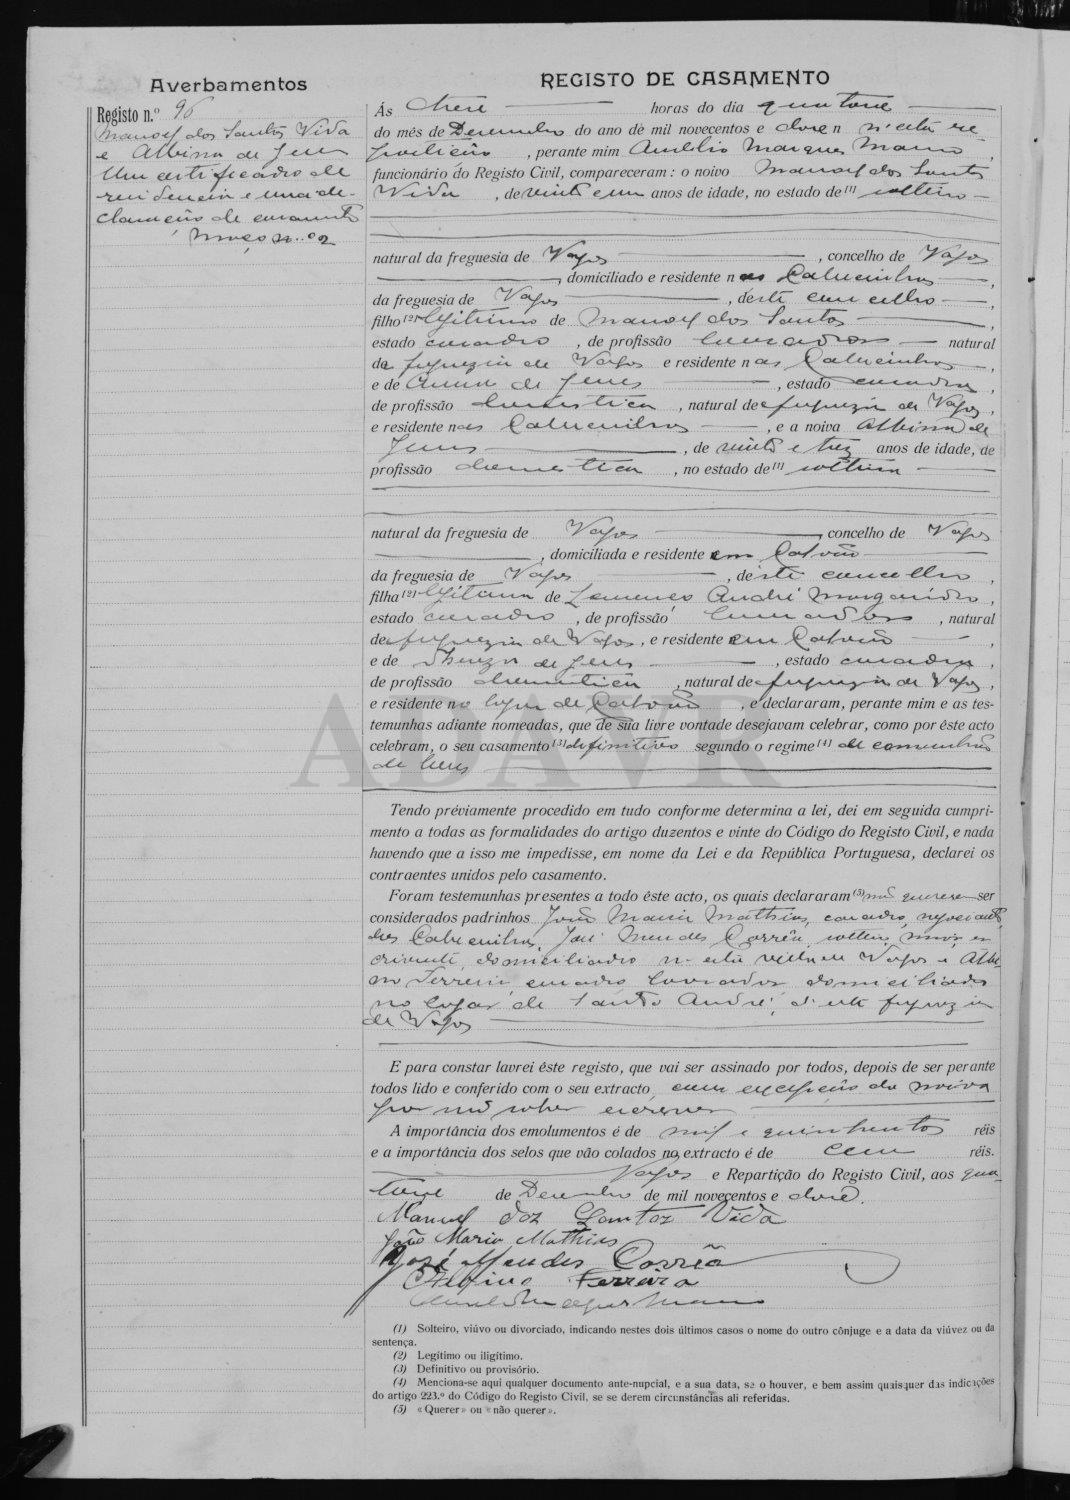 Averbamentos
Registo n.º 96
Manoel dos Santos Vida
e Albina de Jesus
Um certificado de
residencia e uma de-
claração de casamento
Maço n.º 2
REGISTO DE CASAMENTO
Ás treze horas do dia quatorze
do mês de Dezembro do ano de mil novecentos e doze n'esta re-
partição, perante mim Aurelio Marques Mano,
funcionário do Registo Civil, compareceram: o noivo Manoel dos Santos
Vida, de vinte e um anos de idade, no estado de (1) solteiro
natural da freguesia de Vagos, concelho de Vagos
, domiciliado e residente nas,
da freguesia de Vagos, deste concelho,
filho (2) legitimo de Manoel dos Santos,
estado casado, de profissão lavrador natural
da freguezia de Vagos e residente nas,
e de Anna de Jesus, estado casada,
de profissão domestica, natural da freguezia de Vagos,
e residente nas, e a noiva Albina de
Jesus, de vinte e trez anos de idade, de
profissão domestica, no estado de (1) solteira
natural da freguesia de Vagos, concelho de Vagos
, domiciliada e residente em Calvão
da freguesia de Vagos, deste concelho,
filha (2) legitima de Lourenço André Morgadinho,
estado casado, de profissão lavrador, natural
da freguezia de Vagos, e residente em Calvão,
e de Thereza de Jesus, estado casada,
de profissão domestica, natural da freguezia de Vagos,
e residente no lugar de Calvão, e declararam, perante mim e as tes-
temunhas adiante nomeadas, que de sua livre vontade desejavam celebrar, como por êste acto
celebram, o seu casamento (3) definitivo segundo o regime (4) de comunhão
de bens
Tendo préviamente procedido em tudo conforme determina a lei, dei em seguida cumpri-
mento a todas as formalidades do artigo duzentos e vinte do Código do Registo Civil, e nada
havendo que a isso me impedisse, em nome da Lei e da República Portuguesa, declarei os
contraentes unidos pelo casamento.
Foram testemunhas presentes a todo êste acto, os quais declararam (5) não querer ser
considerados padrinhos João Maria Mathias, casado, negociante,
das, José Mendes Corrêa, solteiro, maior, es-
crivente, domiciliado n'esta villa de Vagos e Albi-
no Ferreira, casado, lavrador, domiciliado
no lugar de Santo André, d'esta freguezia
de Vagos
E para constar lavrei êste registo, que vai ser assinado por todos, depois de ser perante
todos lido e conferido com o seu extracto, com excepção da noiva
por não saber escrever
A importância dos emolumentos é de mil e quinhentos réis
e a importância dos selos que vão colados no extracto é de cem réis.
Vagos e Repartição do Registo Civil, aos qua-
torze de Dezembro de mil novecentos e doze.
Manuel dos Santos Vida
João Maria Mathias
José Mendes Corrêa
Albino Ferreira
Aurelio Marques Mano
ADAVR
(1) Solteiro, viúvo ou divorciado, indicando nestes dois últimos casos o nome do outro cônjuge e a data da viúvez ou da
sentença.
(2) Legítimo ou iligítimo.
(3) Definitivo ou provisório.
(4) Menciona-se aqui qualquer documento ante-nupcial, e a sua data, se o houver, e bem assim quaisquer das indicações
do artigo 223.º do Código do Registo Civil, se se derem circunstâncias ali referidas.
(5) «Querer» ou «não querer».